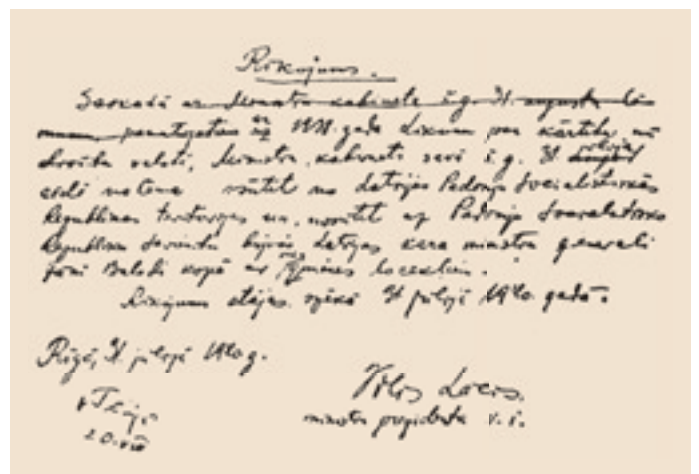 Rīkojums.
Saskaņā ar Ministru kabineta š.g. 31. augusta
pamatojoties uz gada Likumu par kārtību un
drošību valstī, Ministru kabinets savā š.g. 31. jūlija
sēdē notēma izsūtīt no Latvijas Padomju Sociālistiskās
Republikas teritorijas un nosūtīt uz Padomju Sociālistisko
Republiku Savienību bijušo Latvijas kara ministru ģenerāli
Jāni Balodi kopā ar ģimenes locekļiem.
Rīkojums stājas spēkā 31 jūlijā 1940. gadā.
Rīgā, 31. jūlijā 1940 g.
Vilis Lācis.
ministru prezidenta v. i.